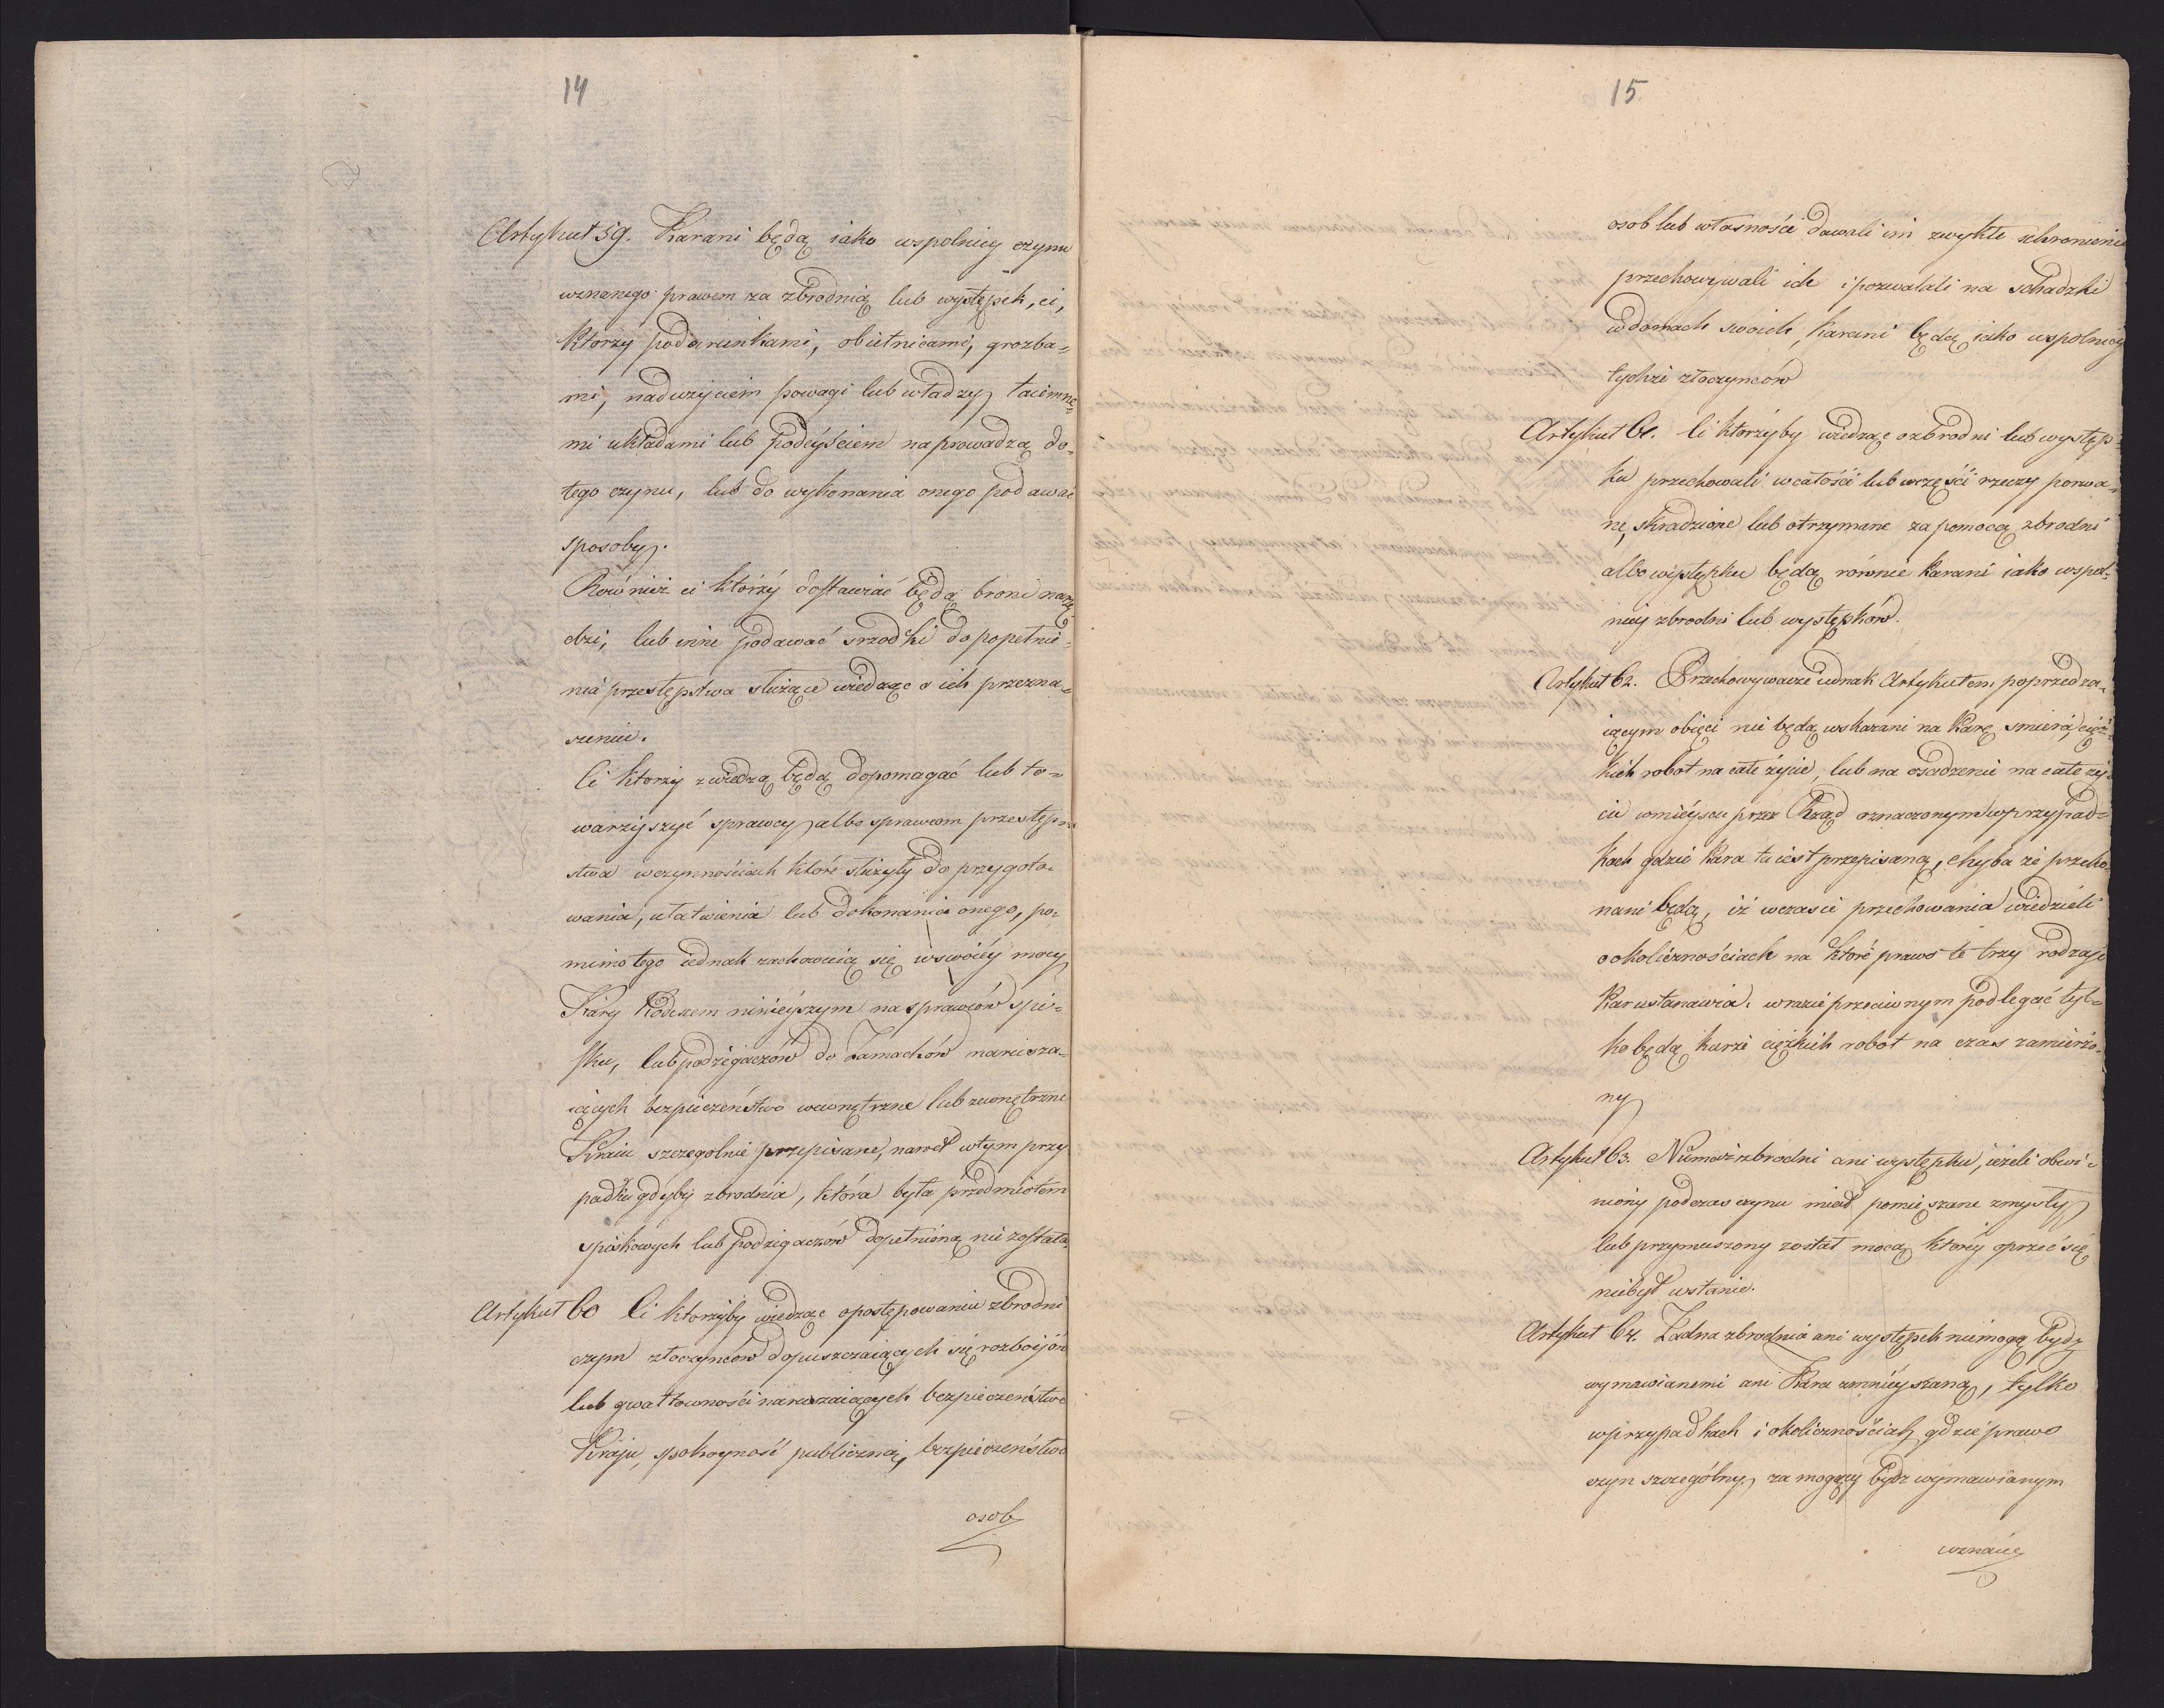 14
Artykuł 59. Karani będą iako wspolnicy czynu
uznanego prawem za zbrodnią lub występek, ci,
Którzy podarunkami, obietnicami, grozba-
mi, nadużyciem powagi lub władzy, taiemne-
mi układami lub podeyściem naprowadzą do-
tego czynu, lub do wykonania onego podawać
sposoby.
Również ci którzy dostawiać będą broni narzę-
dzi, lub inne podawać srzodki do popełnie-
nia przestępstwa służące wiedząc o ich przezna-
czeniu.
Ci ktorzy z wiedzą będą dopomagać lub to-
warzyszyć sprawcy albo sprawcom przestęp-
stwa w czynnościach które służyły do przygoto-
wania, ułatwienia lub dokonania onego, po-
mimo tego iednak zachowuią się w swoiéy mocy
Káry Kodexem ninieyszym na sprawców spi-
sku, lub podżegaczów do Zamachów narusza-
iących bezpieczeństwo wewnętrzne lub zewnętrzne
Kraiu szczegolnie przepisane, nawet w tym przy
padku gdyby zbrodnia, która była przedmiotem
spiskowych lub podżegaczów dopełnioną nie została.
Artykuł 60 Ci ktorzyby wiedząc o postępowaniu zbrodni
czym złoczyńców dopuszczaiących się rozboiów
lub gwałtowności naruszaiących bezpieczeństwo
Kraju, spokoyność publiczną, bezpieczeństwo
osob
15.
osob lub własności dawali im zwykłe schronienie
przechowywali ich i pozwalali na schadzki
w domach swoich, karani będą iako wspolnicy
tychże złoczyncow
Artykuł 61. Ci ktorzyby wiedząc o zbrodni lub występ-
ku przechowali w całości lub w części rzeczy porwa-
ne, skradzione lub otrzymane za pomocą zbrodni
albo występku będą równie karani iako wspol-
nicy zbrodni lub występków.
Artykuł 62. Przechowywacze iednak Artykułem poprzedza-
iącym obięci nie będą wskazani na Karę smierci, cięż-
kich robot na całe życie, lub na osadzenie na całe ży-
cie w mieyscu przez Rząd oznaczonym w przypad-
kach gdzie Kara ta iest przepisaną, chyba że przeko-
nani będą, iż w czasie przechowania wiedzieli
o okolicznościach na które prawo te trzy rodzaje
Kar ustanawia. w razie przeciwnym podlegać tyl-
ko będą karze cięzkich robot na czas zamierzo-
ny
Artykuł 63. Niemasz zbrodni ani występku, ieżeli obwi-
niony podczas czynu miał pomieszane zmysły
lub przymuszony został mocą któréy oprzeć się
niebył w stanie.
Artykuł 64. Zadna zbrodnia ani występek niemogą bydź
wymawianemi ani Kara zmnieyszaną, tylko
w przypadkach i okolicznościach gdzie prawo
czyn szczególny, za mogący bydz wymawianym
uznaie